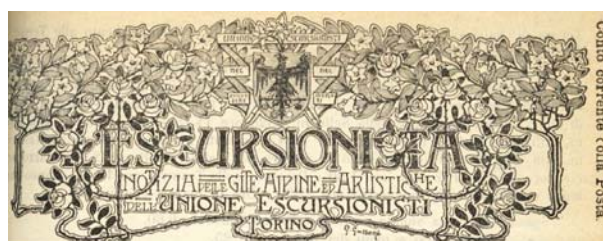 UNIONE ESCURSIONISTI
L'ESCURSIONISTA
NOTIZIA DELLE GITE ALPINE ED ARTISTICHE
DELL'UNIONE ESCURSIONISTI
TORINO
Conto corrente colla Posta